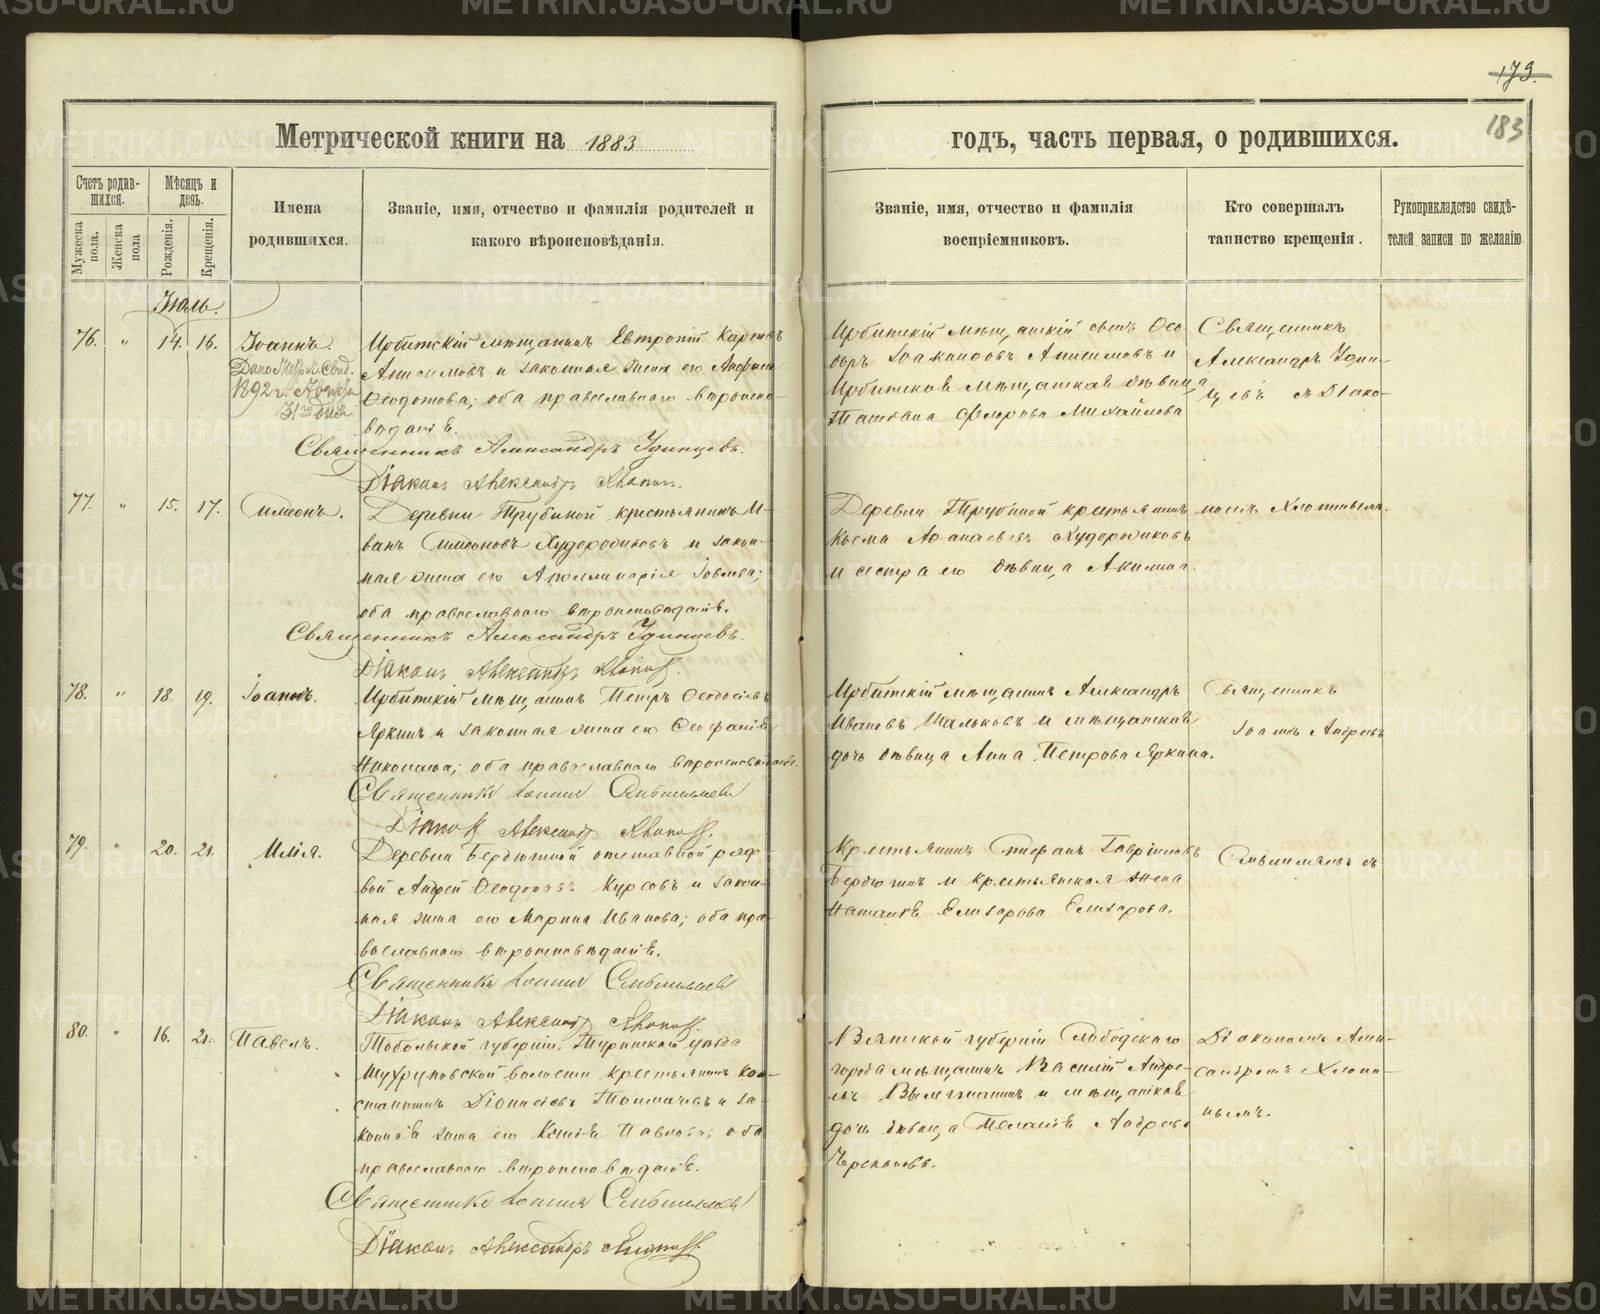 179.
183
Метрической книги на 1883
годъ, часть первая, о родившихся.
Счетъ родив-
шихся.
Мѣсяцъ и
день.
Мужеска
пола.
Женска
пола
Рожденія.
Крещенія.
Имена
родившихся.
Званіе, имя, отчество и фамилія родителей и
какого вѣроисповѣданія.
Званіе, имя, отчество и фамилія
воспріемниковъ.
Кто совершалъ
таинство крещенія.
Рукоприкладство свидѣ-
телей записи по желанію
Іюль.
76. " 14. 16. Іоаннъ.
Дано Метр. Свид.
1892 г.
31го дня
Ирбитскій мѣщанинъ Евтропій Карповъ
Анисимовъ и законная жена его Анфиса
Ѳеодотова; оба православнаго вѣроиспо-
вѣданія.
Священникъ Александръ Удинцевъ.
Діаконъ Александръ
Ирбитскій мѣщанскій сынъ Ѳео-
доръ Анисимовъ и
Ирбитская мѣщанская дѣвица
Татіана Флорова Михайлова
Священникъ
Александръ Удин-
цевъ съ Діако-
77. " 15. 17. Симеонъ.
Деревни Трубиной крестьянинъ И-
ванъ Симеоновъ Худорожковъ и закон-
ная жена его Аполлинарія Іовлева;
оба православнаго вѣроисповѣданія.
Священникъ Александръ Удинцевъ.
Діаконъ Александръ
Деревни Трубиной крестьянинъ
Козьма Аѳанасьевъ Худорожковъ
и сестра его дѣвица Акилина.
номъ
78. " 18. 19. Іоаннъ.
Ирбитскій мѣщанинъ Петръ Ѳеодосіевъ
Яркинъ и законная жена его Ѳеофанія
Николаева; оба православнаго вѣроисповѣданія.
Священникъ Іоаннъ
Діаконъ Александръ
Ирбитскій мѣщанинъ Александръ
Ивановъ Шальковъ и мѣщанская
дочь дѣвица Анна Петрова Яркина.
Священникъ
Іоаннъ Андреевъ
79. " 20. 21. Илія.
Деревни отставной рядо-
вой Андрей Ѳеодоровъ Курсовъ и закон-
ная жена его Марина Иванова; оба пра-
вославнаго вѣроисповѣданія.
Священникъ Іоаннъ
Діаконъ Александръ
Крестьянинъ Стефанъ Гавріиловъ
и крестьянская жена
Наталія Елизарова Елизарова.
съ
80. " 16. 21. Павелъ.
Тобольской губерніи, Туринскаго уѣзда
волости крестьянинъ Кон-
стантинъ Діонисіевъ Толмачевъ и за-
конная жена его Ксенія Павлова; оба
православнаго вѣроисповѣданія.
Священникъ Іоаннъ
Діаконъ Александръ
Вятской губерніи Слободскаго
города мѣщанинъ Василій Андре-
евъ и мѣщанская
дочь дѣвица Пелагія Андреева
Діакономъ Алек-
сандромъ Хлопи-
нымъ.
METRIKI.GASO-URAL.RU